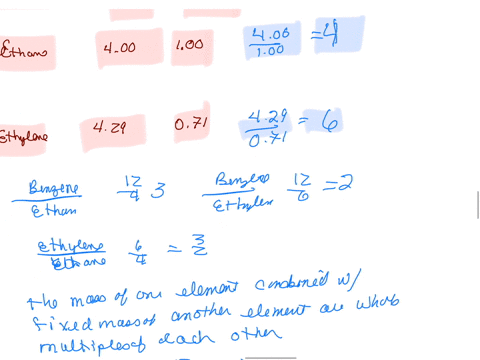 Ethane 4.00 1.00 4.00/1.00 = 4
Ethylene 4.29 0.71 4.29/0.71 = 6
Benzene/Ethan 12/4 3 Benzene/Ethylen 12/6 = 2
Ethylene/Ethane 6/4 = 3/2
the mass of one element combined w/
fixed mass of another element are whole
multiples of each other